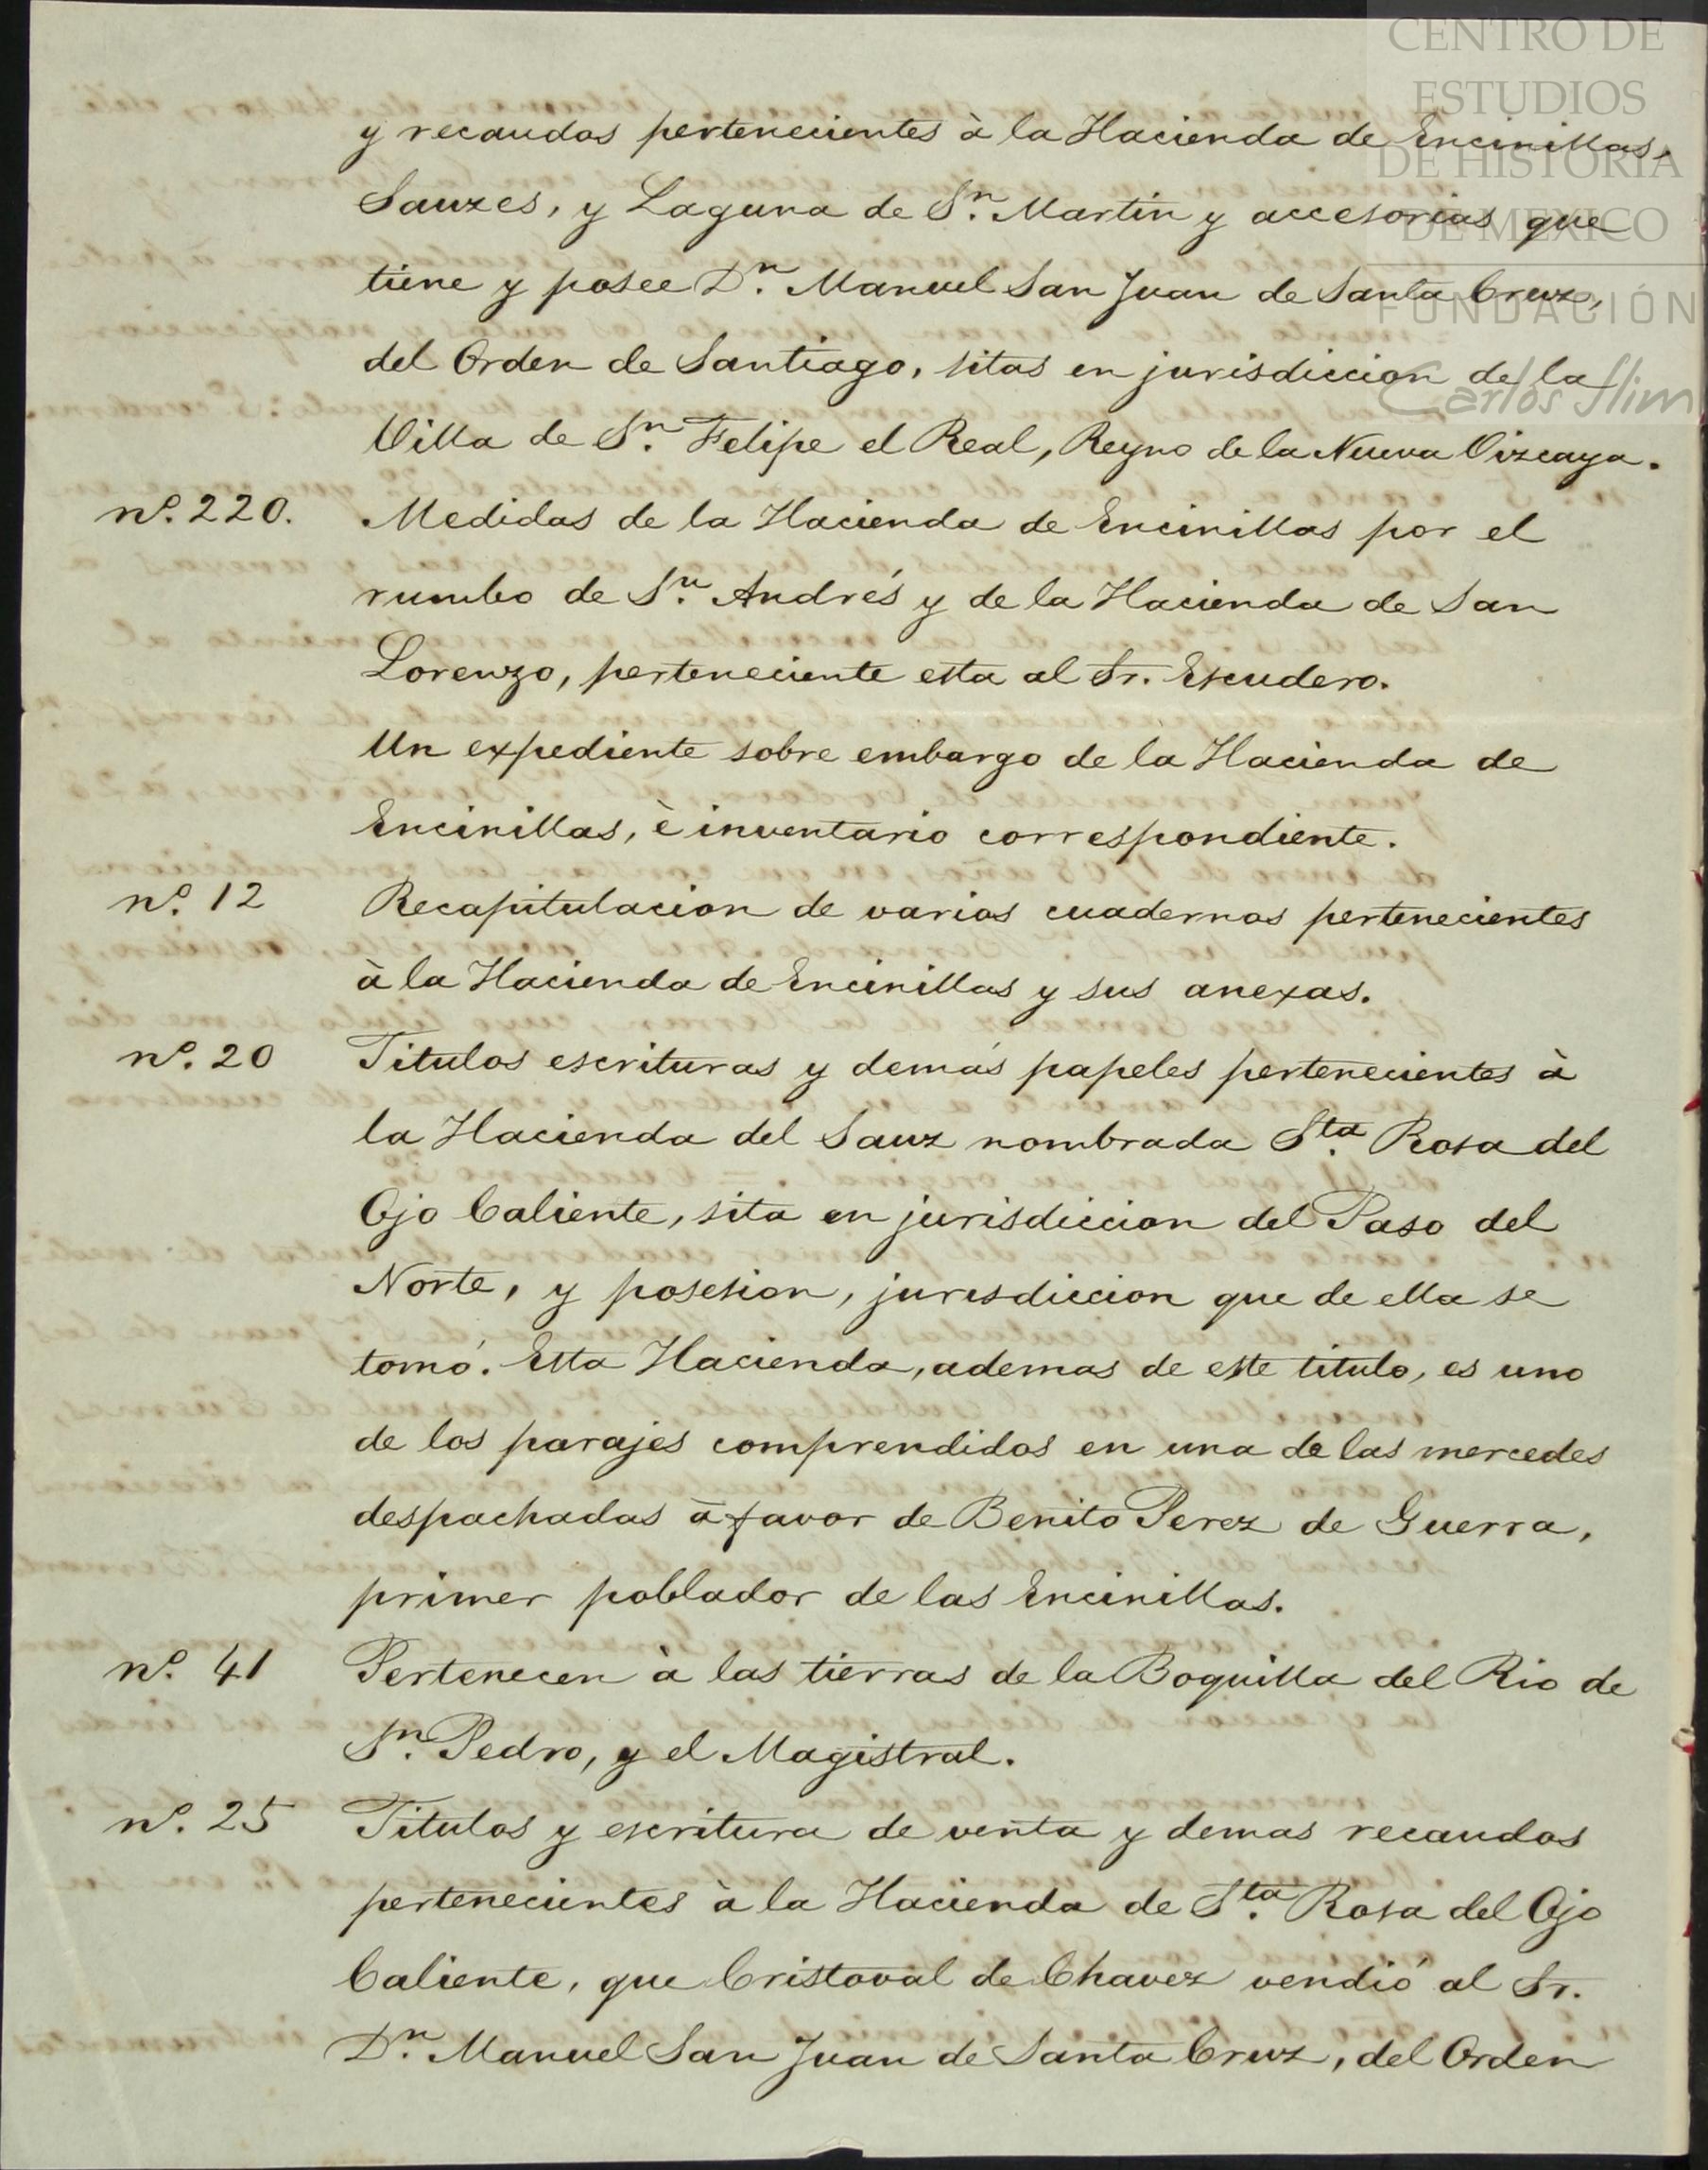 CENTRO DE
ESTUDIOS
DE HISTORIA
DE MEXICO
FUNDACIÓN
Carlos Slim
y recaudos pertenecientes à la Hacienda de Encinillas,
Sauzes, y Laguna de Sn. Martin y accesorias que
tiene y posee Dn. Manuel San Juan de Santa Cruz,
del Orden de Santiago, sitas en jurisdiccion de la
Villa de Sn. Felipe el Real, Reyno de la Nueva Vizcaya.
no. 220. Medidas de la Hacienda de Encinillas por el
rumbo de Sn. Andrés y de la Hacienda de San
Lorenzo, perteneciente esta al Sr. Escudero.
Un expediente sobre embargo de la Hacienda de
Encinillas, è inventario correspondiente.
no. 12 Recapitulacion de varios cuadernos pertenecientes
à la Hacienda de Encinillas y sus anexas.
no. 20 Titulos escrituras y demás papeles pertenecientes à
la Hacienda del Sauz nombrada Sta. Rosa del
Ojo Caliente, sita en jurisdiccion del Paso del
Norte, y posesion, jurisdiccion que de ella se
tomó. Esta Hacienda, ademas de este titulo, es uno
de los parajes comprendidos en una de las mercedes
despachadas à favor de Benito Perez de Guerra,
primer poblador de las Encinillas.
no. 41 Pertenecen à las tierras de la Boquilla del Rio de
Sn. Pedro, y el Magistral.
no. 25 Titulos y escritura de venta y demas recaudos
pertenecientes à la Hacienda de Sta. Rosa del Ojo
Caliente, que Cristoval de Chavez vendió al Sr.
Dn. Manuel San Juan de Santa Cruz, del Orden